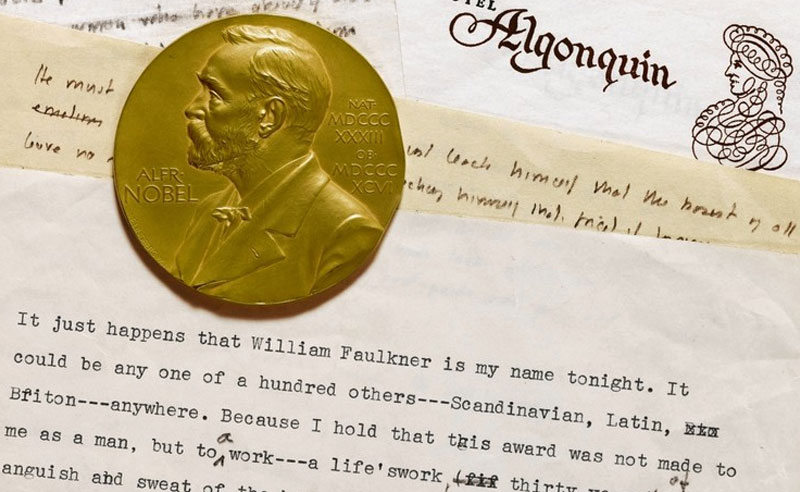 HOTEL
Algonquin
He must
emotions
leave no
teach himself that the basest of all
himself that
ALFR·
NOBEL
NAT·
MDCCC
XXXIII
OB·
MDCCC
XCVI
It just happens that William Faulkner is my name tonight. It
could be any one of a hundred others---Scandinavian, Latin, xxx
Briton---anywhere. Because I hold that this award was not made to
me as a man, but to a work---a life'swork, thirty
anguish and sweat of the